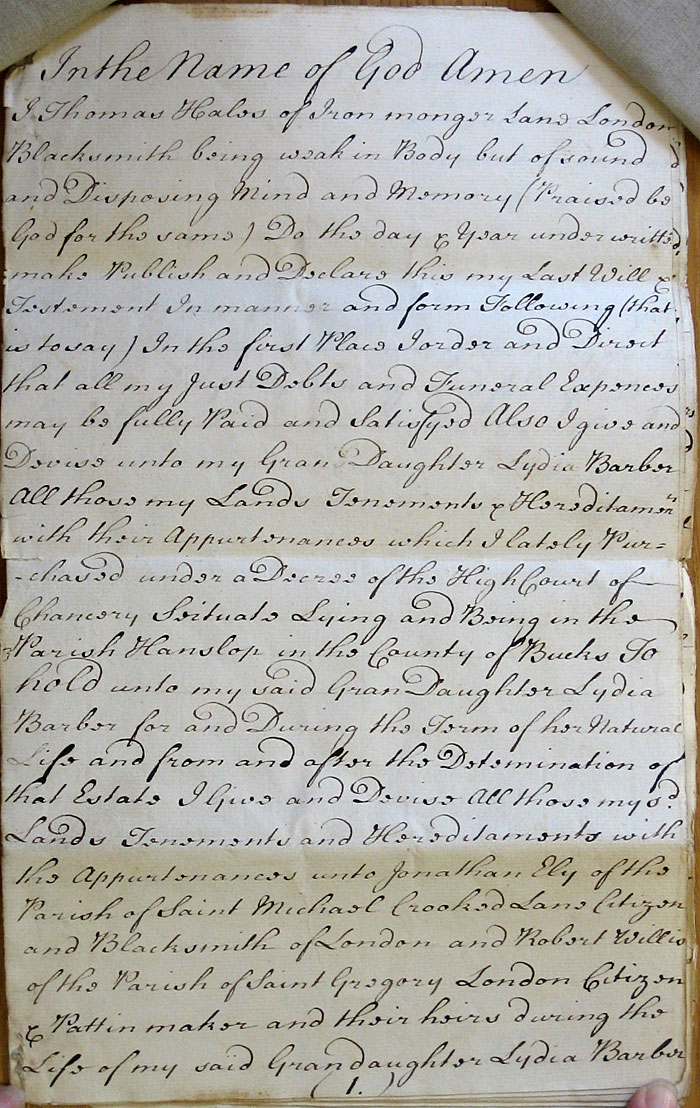 In the Name of God Amen
I Thomas Hales of Iron monger Lane London
Blacksmith being weak in Body but of sound
and Disposing Mind and Memory (Praised be
God for the same) Do the day & Year under writted
make Publish and Declare this my Last Will &
Testement In manner and form Following (that
is to say) In the first Place I order and Direct
that all my Just Debts and Funeral Expences
may be fully Paid and Satisfyed Also I give and
Devise unto my Gran Daughter Lydia Barber
All those my Lands Tenements & Hereditamen
with their Appurtenances which I lately Pur=
-chased under a Decree of the High Court of
Chancery Seituate Lying and Being in the
Parish Hanslop in the County of Bucks To
hold unto my said GranDaughter Lydia
Barber for and During the Term of her Natural
Life and from and after the Detemination of
that Estate I Give and Devise All those my sd.
Lands Tenements and Hereditaments with
the Appurtenances unto Jonathan Ely of the
Parish of Saint Michael Crooked Lane Citizen
and Blacksmith of London and Robert Willis
of the Parish of Saint Gregory London Citizen
& Pattin maker and their heirs during the
Life of my said Grandaughter Lydia Barber
(1.)